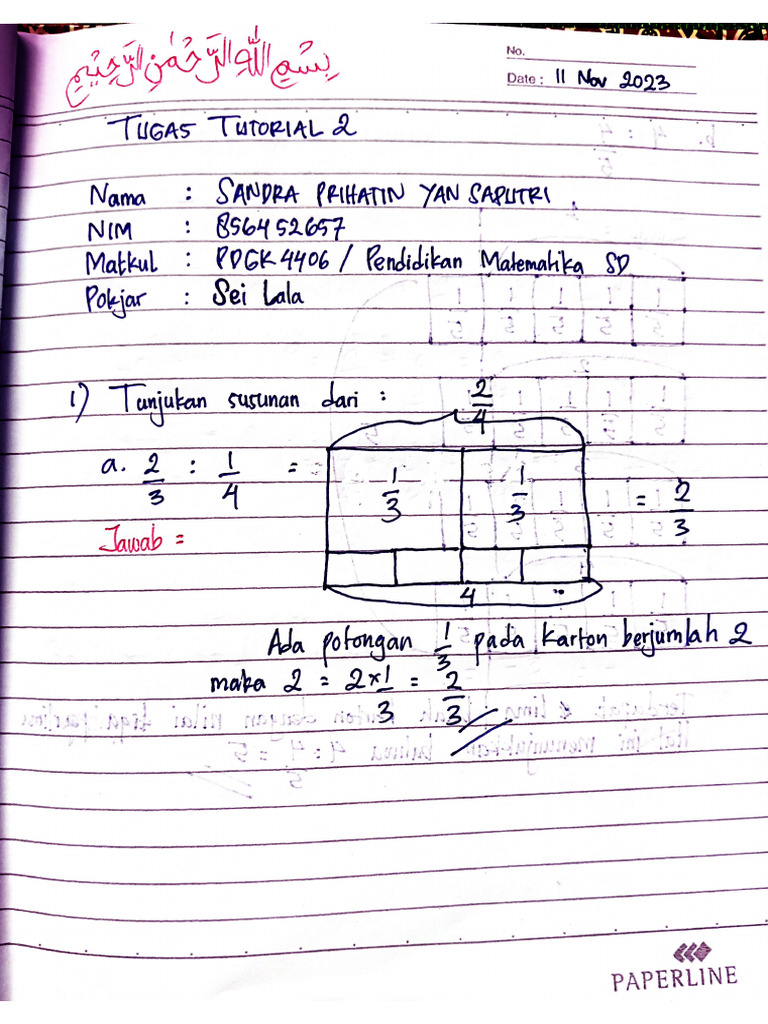 بِسْمِ اللّٰهِ الرَّحْمٰنِ الرَّحِيْمِ
No.
Date : 11 Nov 2023
TUGAS TUTORIAL 2
Nama : SANDRA PRIHATIN YAN SAPUTRI
NIM : 856452657
Matkul : PDGK 4406 / Pendidikan Matematika SD
Pokjar : Sei Lala
1) Tunjukan susunan dari :
2/4
a. 2/3 : 1/4 = 1/3 1/3 = 2/3
Jawab =
4
Ada potongan 1/3 pada karton berjumlah 2
maka 2 = 2 x 1/3 = 2/3
PAPERLINE